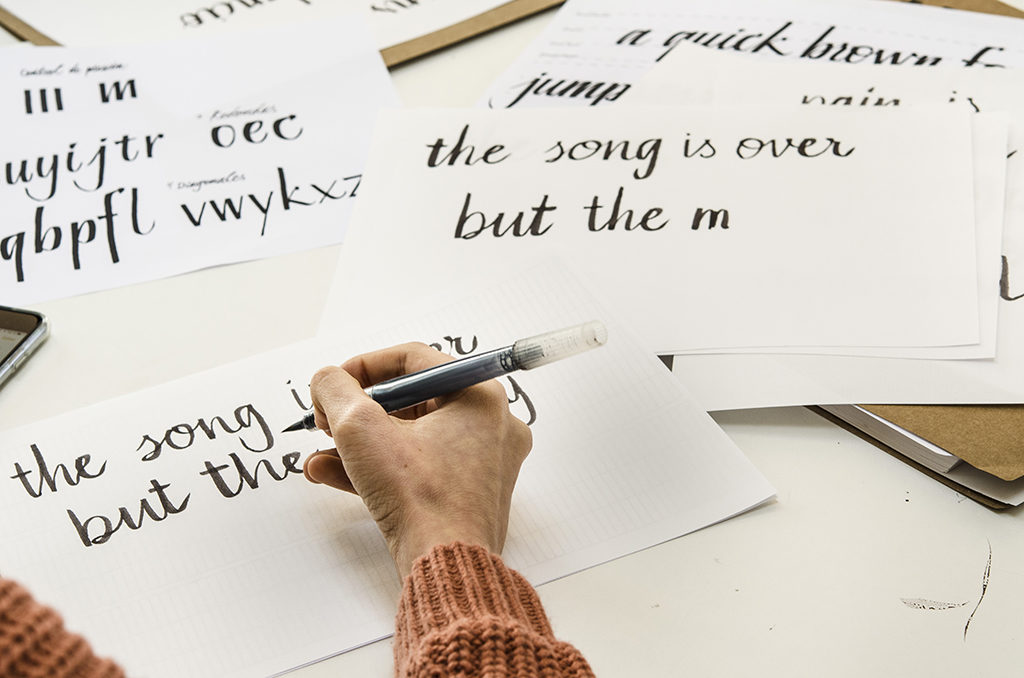 Control de presión
III m
Redondas
oec
uyijtr
Diagonales
qbpfl vwykxz
a quick brown f
jump
the song is over
but the m
the song i er
but the y